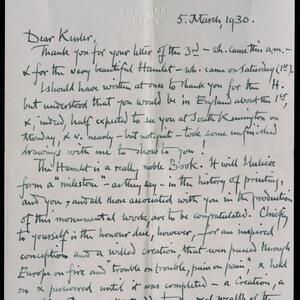 5. March, 1930.
Dear Kessler,
Thank you for your letter of the 3rd – wh. came this a.m. –
& for the very beautiful Hamlet – wh. came on Saturday (1st).
I should have written at once to thank you for the H.
but understood that you would be in England about the 1st,
& indeed, half expected to see you at South Kensington on
Monday, & v. nearly – but not quite – took some unfinished
drawings with me to show to you!
The Hamlet is a really noble Book. It will I believe
form a "milestone" – as they say – in the history of printing,
and you, and all those associated with you in the production
of this monumental work are to be congratulated. Chiefly
to yourself is the honour due, however, for an inspired
conception and a willed Creation, that even passed through
Europe on fire and "trouble on trouble, pain on pain", & held
on & persevered until it was completed – a Creation, a